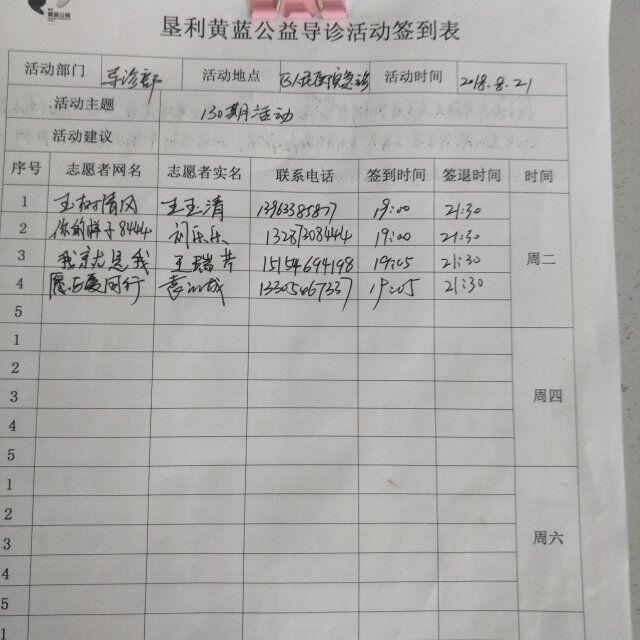 黄蓝公益
垦利黄蓝公益导诊活动签到表
活动部门 导诊部 活动地点 区人民医院急诊 活动时间 2018.8.21
活动主题 130期活动
活动建议
序号 志愿者网名 志愿者实名 联系电话 签到时间 签退时间 时间
1 玉树清风 王玉清 13963385877 19:00 21:30
2 你的样子8444 刘乐乐 13287308444 19:00 21:30
3 我就是我 王瑞芳 15154694198 19:05 21:30
4 愿与爱同行 13305467337 19:05 21:30
周二
5
1
2
3
周四
4
5
1
2
3
周六
4
5
1